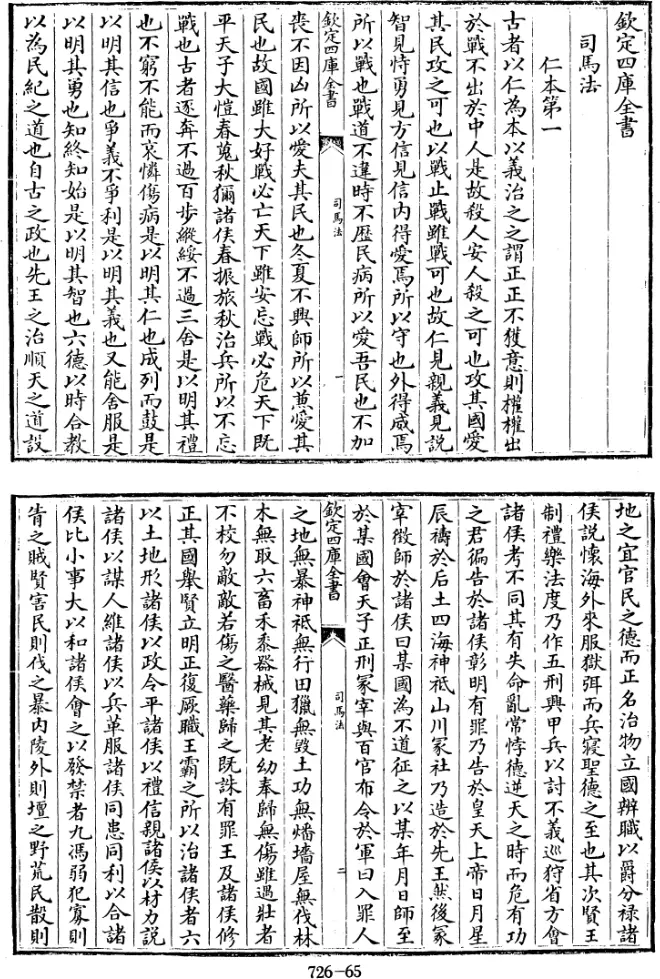 欽定四庫全書
司馬法
仁本第一
古者以仁為本以義治之之謂正正不獲意則權權出
於戰不出於中人是故殺人安人殺之可也攻其國愛
其民攻之可也以戰止戰雖戰可也故仁見親義見説
智見恃勇見方信見信内得愛焉所以守也外得威焉
所以戰也戰道不違時不歴民病所以愛吾民也不加
欽定四庫全書
司馬法
一
喪不因凶所以愛夫其民也冬夏不興師所以兼愛其
民也故國雖大好戰必亡天下雖安忘戰必危天下既
平天子大愷春蒐秋獮諸侯春振旅秋治兵所以不忘
戰也古者逐奔不過百步縱綏不過三舍是以明其禮
也不窮不能而哀憐傷病是以明其仁也成列而鼓是
以明其信也爭義不爭利是以明其義也又能舍服是
以明其勇也知終知始是以明其智也六德以時合教
以為民紀之道也自古之政也先王之治順天之道設
地之宜官民之德而正名治物立國辨職以爵分禄諸
侯説懷海外來服獄弭而兵寢聖德之至也其次賢王
制禮樂法度乃作五刑興甲兵以討不義巡狩省方會
諸侯考不同其有失命亂常悖德逆天之時而危有功
之君徧告於諸侯彰明有罪乃告於皇天上帝日月星
辰禱於后土四海神祇山川冢社乃造於先王然後冢
宰徵師於諸侯曰某國為不道征之以某年月日師至
於某國會天子正刑冢宰與百官布令於軍曰入罪人
欽定四庫全書
司馬法
二
之地無暴神祇無行田獵無毀土功無燔墻屋無伐林
木無取六畜禾黍器械見其老幼奉歸無傷雖遇壯者
不校勿敵敵若傷之醫藥歸之既誅有罪王及諸侯修
正其國舉賢立明正復厥職王霸之所以治諸侯者六
以土地形諸侯以政令平諸侯以禮信親諸侯以材力説
諸侯以謀人維諸侯以兵革服諸侯同患同利以合諸
侯比小事大以和諸侯會之以發禁者九馮弱犯寡則
眚之賊賢害民則伐之暴内陵外則壇之野荒民散則
726-65